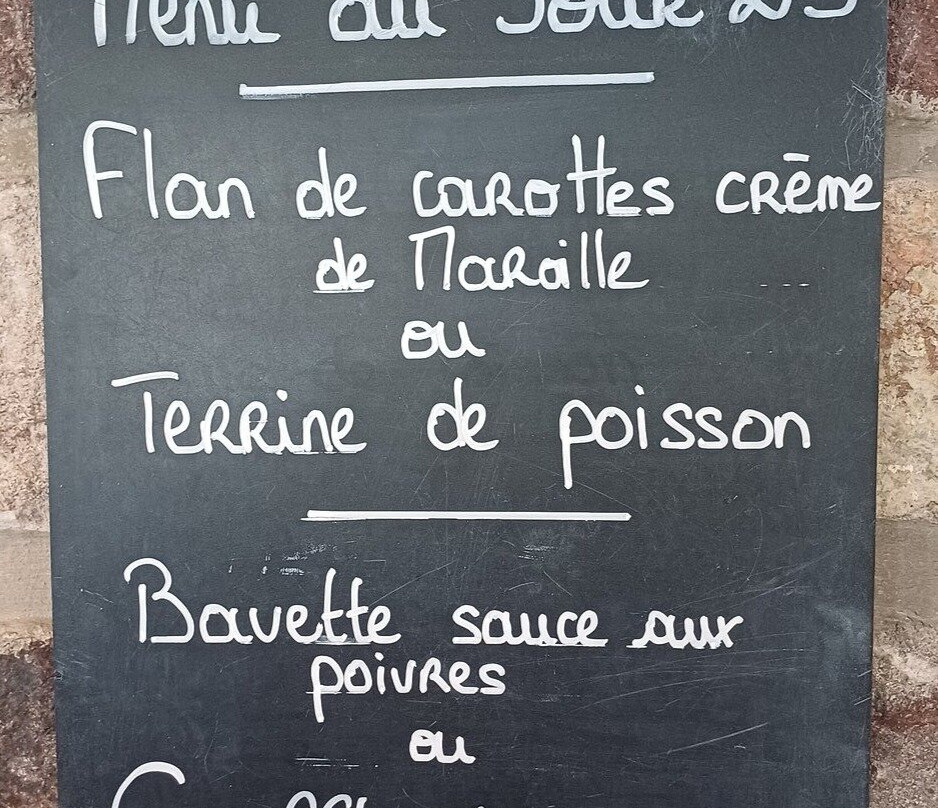 Menu du Jour 23
Flan de carottes crème
de Maroille
ou
Terrine de poisson
Bavette sauce aux
poivres
ou